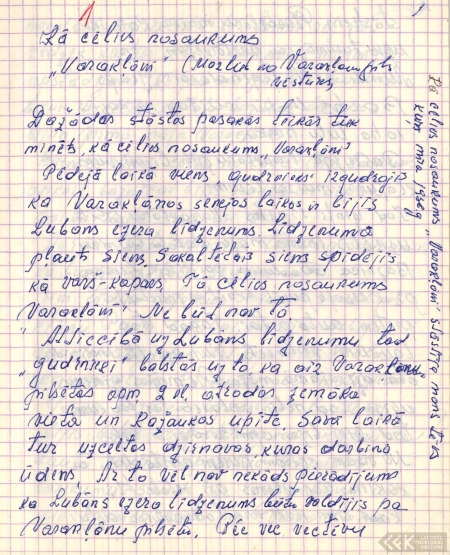 1
1
Kā cēlies nosaukums
„Varakļāni” (Mazliet no Varakļānu pils
vēstures
Dažādos stāstos pasakās teikās tiek
minēts, kā cēlies nosaukums „Varakļāni”
Pēdējā laikā viens „gudrinieks” izgudrojis
ka Varakļānos senajos laikos ir bijis
Lubāns ezera līdzenums. Līdzenumā
pļauts siens. Sakaltušais siens spīdējis
kā varš-kapars. Tā cēlies nosaukums
Varakļāni” Ne būt nav tā.
Attiecībā uz Lubāns līdzenumu tad
„gudrinieki” balstās uz to, ka aiz Varakļānu
pilsētas apm. 2 kl. atrodas zemāka
vieta un Kažaukas upīte. Savā laikā
tur uzceltas dzirnavas, kuras darbina
ūdens. Ar to vēl nav nekāds pierādījums
ka Lubāns ezera līdzenums būtu valdījis pa
Varakļānu pilsētu. Pēc vec vectēvu
Kā cēlies nosaukums „Varakļāni” stāstīja mans tēvs